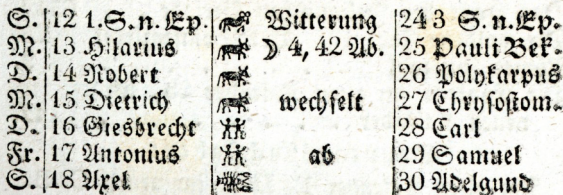 S. 12 1. S. n. Ep. Witterung 24 3 S. n. Ep.
M. 13 Hilarius ☽ 4, 42 Ab. 25 Pauli Bek.
D. 14 Robert 26 Polykarpus
M. 15 Dietrich wechselt 27 Chrysostom.
D. 16 Giesbrecht 28 Carl
Fr. 17 Antonius ab 29 Samuel
S. 18 Axel 30 Adelgund